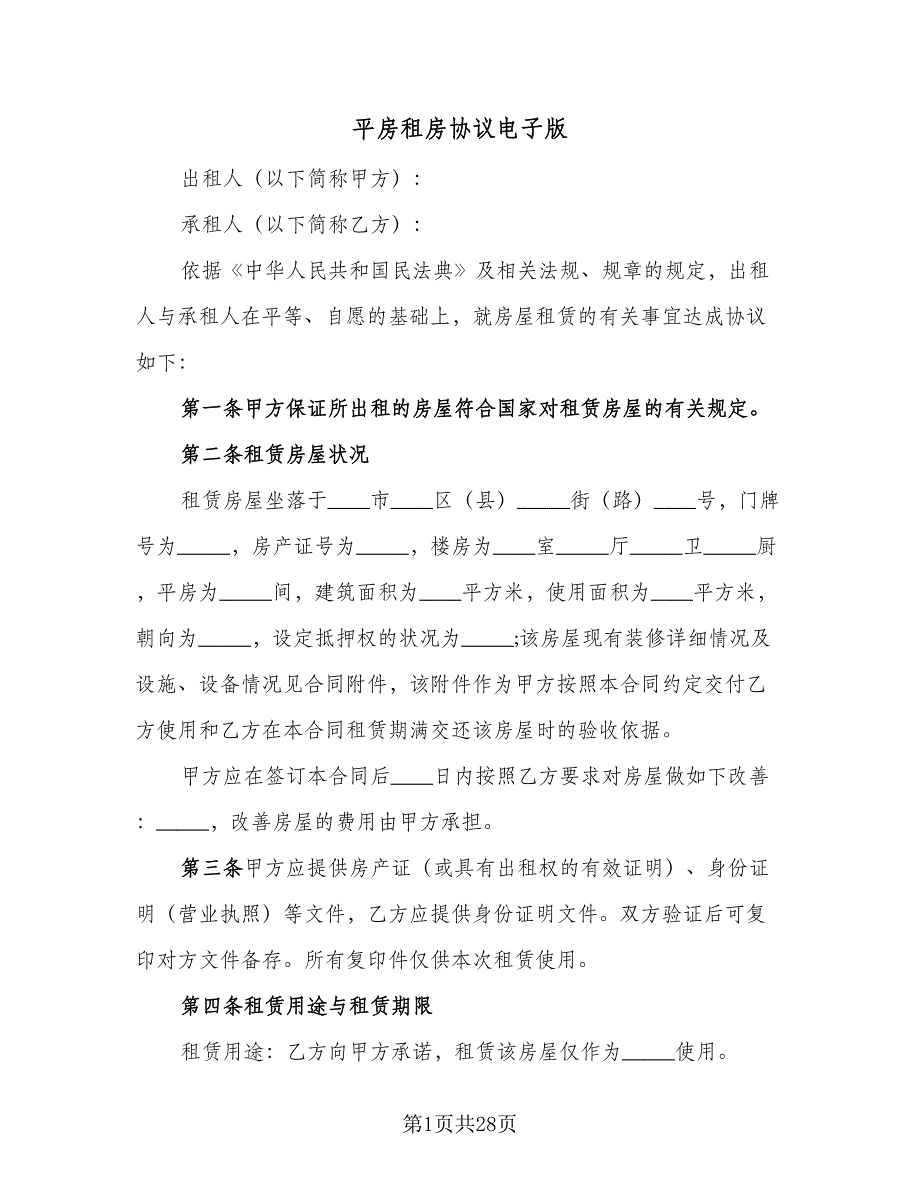 平房租房协议电子版
出租人（以下简称甲方）：
承租人（以下简称乙方）：
依据《中华人民共和国民法典》及相关法规、规章的规定，出租
人与承租人在平等、自愿的基础上，就房屋租赁的有关事宜达成协议
如下：
第一条甲方保证所出租的房屋符合国家对租赁房屋的有关规定。
第二条租赁房屋状况
租赁房屋坐落于____市____区（县）_____街（路）____号，门牌
号为_____，房产证号为_____，楼房为____室_____厅_____卫_____厨
，平房为_____间，建筑面积为____平方米，使用面积为____平方米，
朝向为_____，设定抵押权的状况为_____;该房屋现有装修详细情况及
设施、设备情况见合同附件，该附件作为甲方按照本合同约定交付乙
方使用和乙方在本合同租赁期满交还该房屋时的验收依据。
甲方应在签订本合同后____日内按照乙方要求对房屋做如下改善
：_____，改善房屋的费用由甲方承担。
第三条甲方应提供房产证（或具有出租权的有效证明）、身份证
明（营业执照）等文件，乙方应提供身份证明文件。双方验证后可复
印对方文件备存。所有复印件仅供本次租赁使用。
第四条租赁用途与租赁期限
租赁用途：乙方向甲方承诺，租赁该房屋仅作为_____使用。
第1页共28页